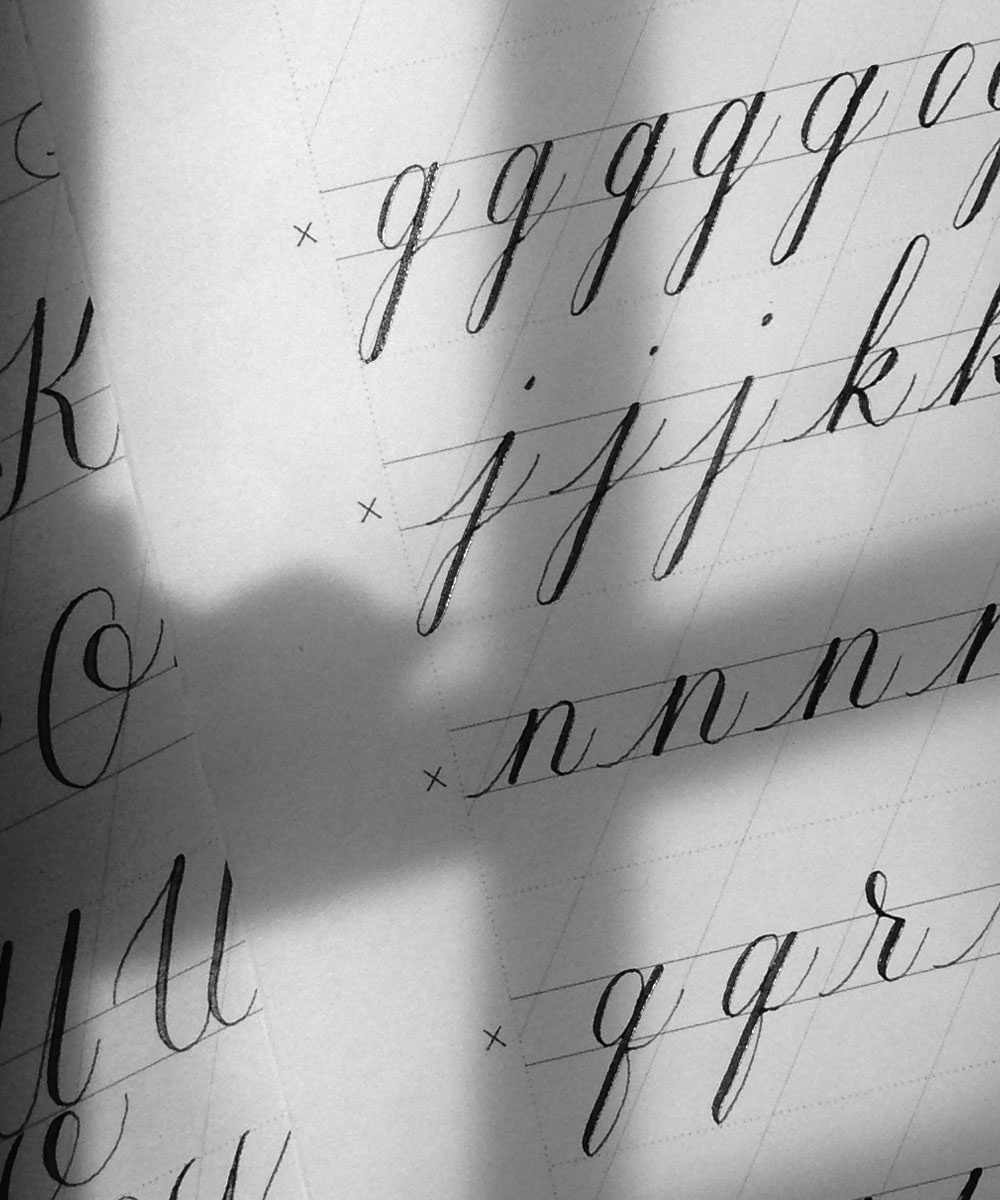 K
O
U
x g g g g g o
x j j j k k
x n n n n
x q q r